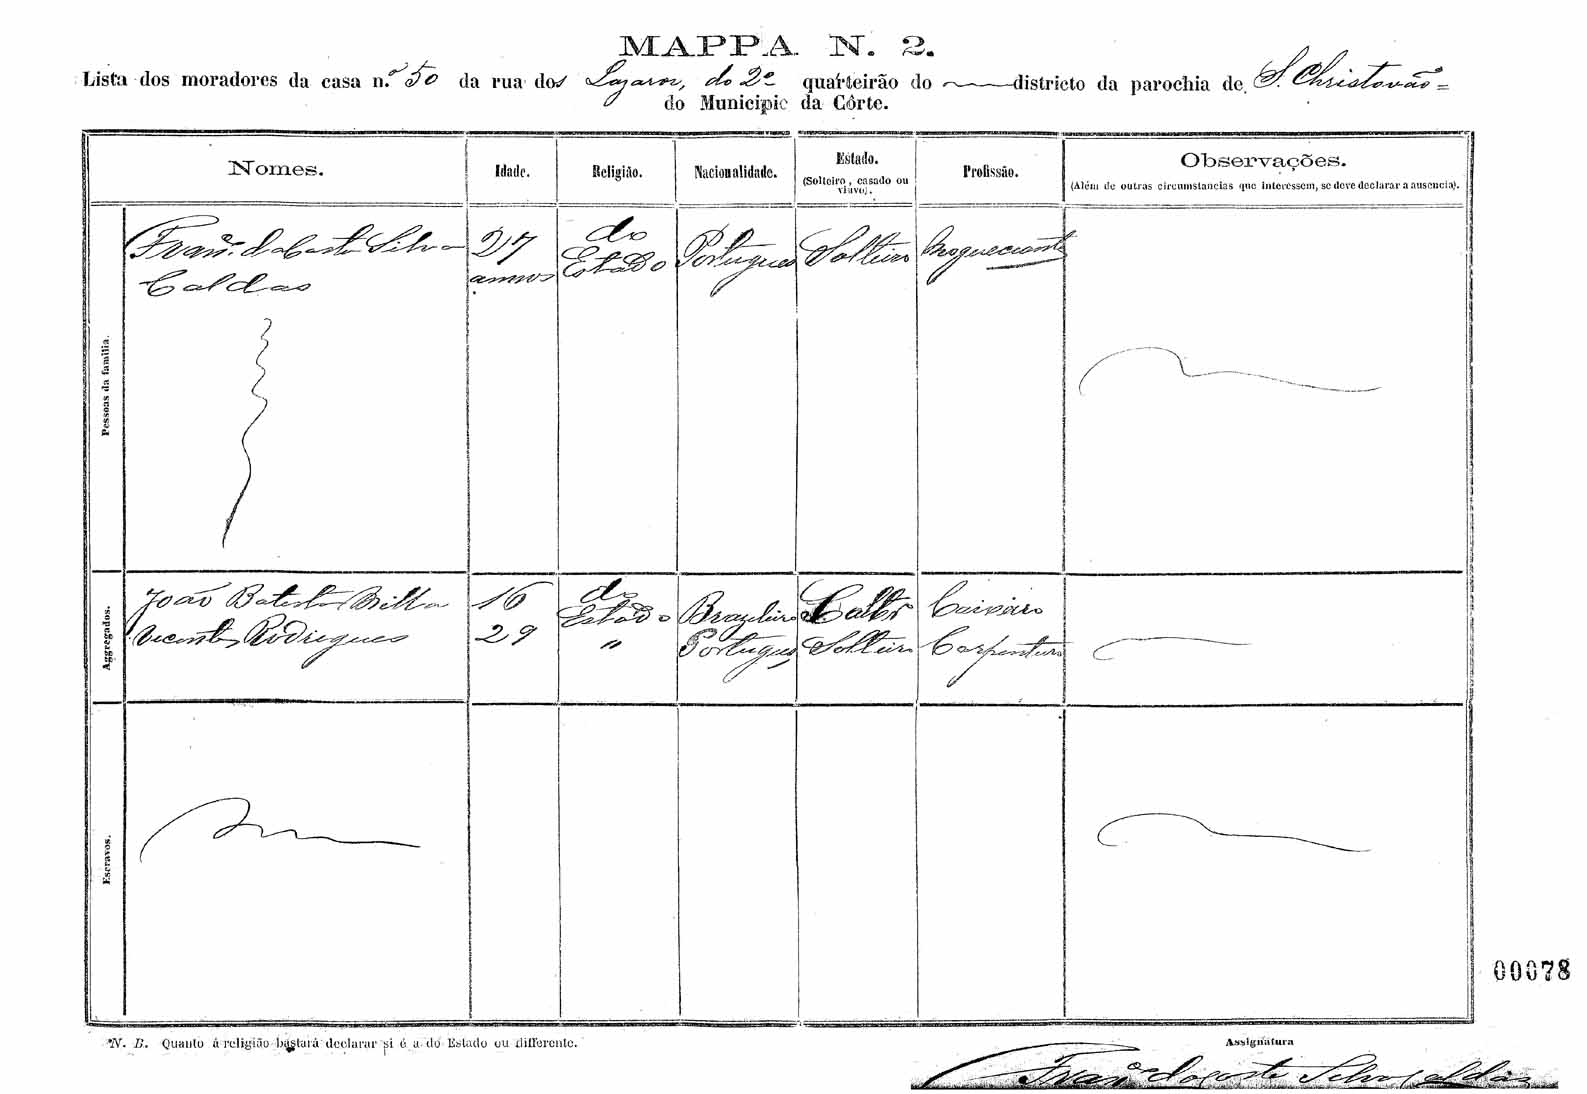 MAPPA N. 2.
Lista dos moradores da casa n.º 50 da rua dos Lazaros, do 2º quarteirão do districto da parochia de S. Christovão =
do Municipio da Côrte.
Nomes. Idade. Religião. Nacionalidade. Estado. (Solteiro, casado ou viuvo). Profissão. Observações. (Além de outras circumstancias que interessem, se deve declarar a ausencia).
Pessoas da familia.
Fran.co da Costa Silva 27 do Portugues Solteiro
Caldas annos Estado
Aggregados.
João Batista 16 do Estado Brazileiro Caixeiro
Vicente Rodrigues 29 " Portugues Solteiro Carpinteiro
Escravos.
00078
N. B. Quanto á religião bastará declarar si é a do Estado ou differente.
Assignatura
Fran.co da Costa Silva Caldas